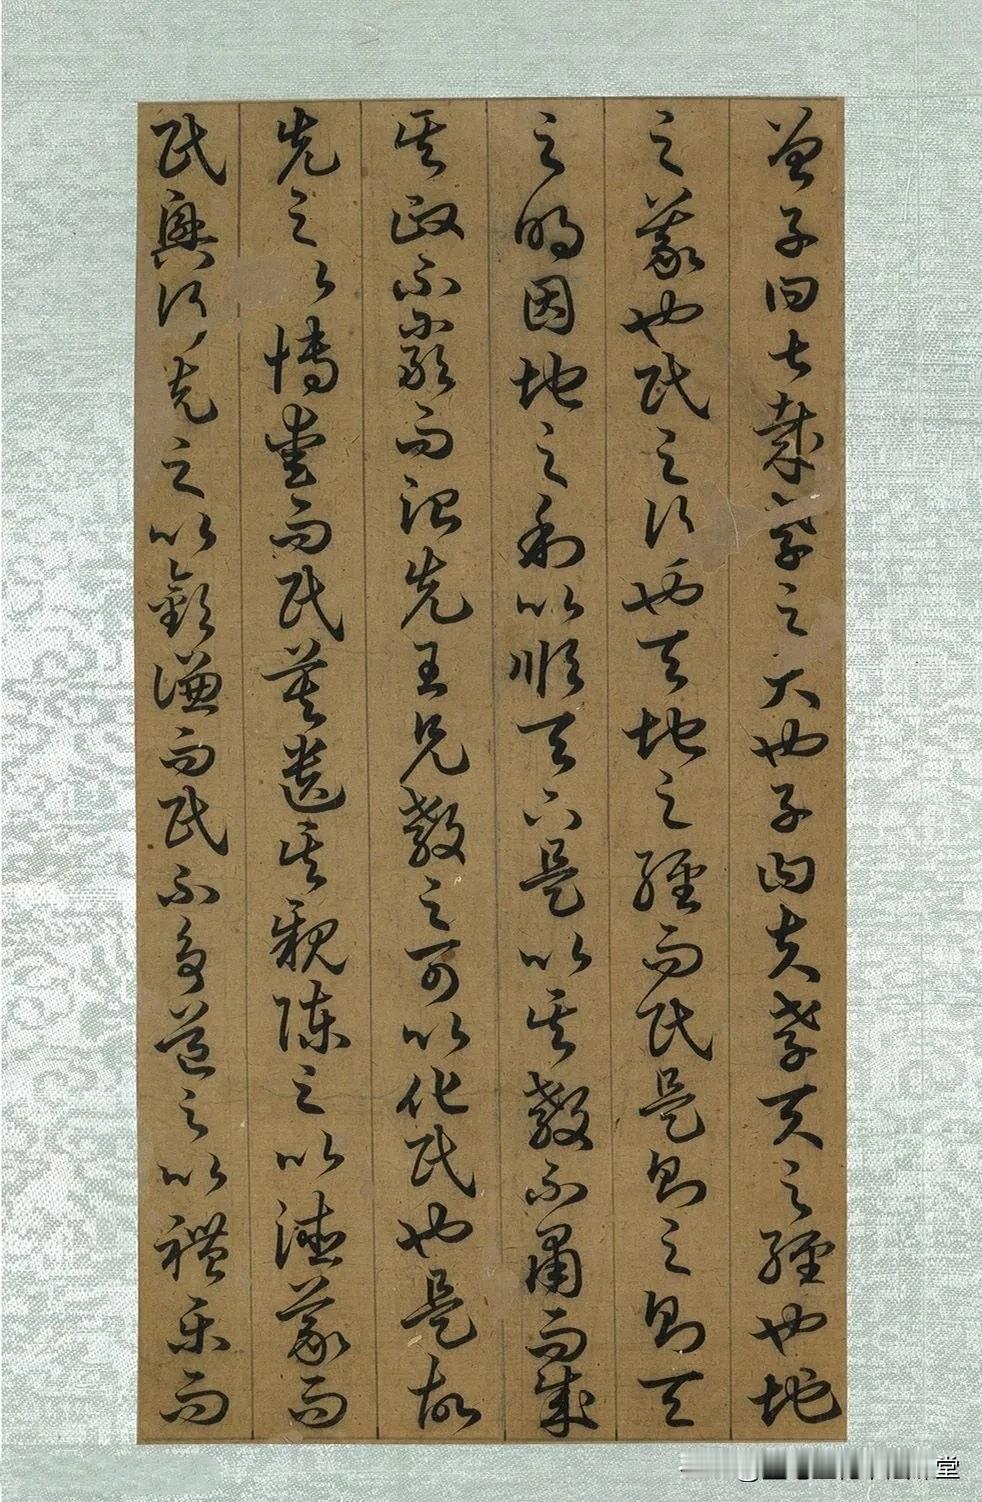 曾子曰甚哉孝之大也子曰夫孝天之經也地
之義也民之行也天地之經而民是則之則天
之明因地之利以順天下是以其教不肅而成
其政不嚴而治先王見教之可以化民也是故
先之以博愛而民莫遺其親陳之以德義而
民興行先之以敬讓而民不爭道之以禮樂而
堂